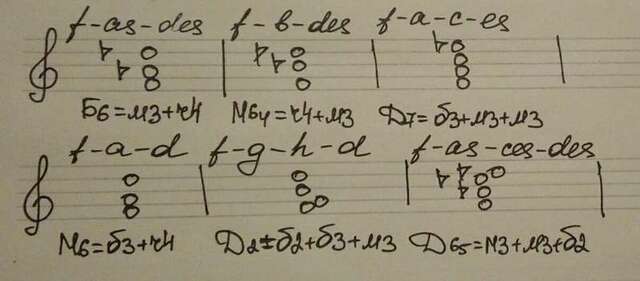 f-as-des f-b-des f-a-c-es
Б6=м3+ч4 М64=ч4+м3 Д7=б3+м3+м3
f-a-d f-g-h-d f-as-ces-des
М6=б3+ч4 Д2=б2+б3+м3 Д65=м3+м3+б2